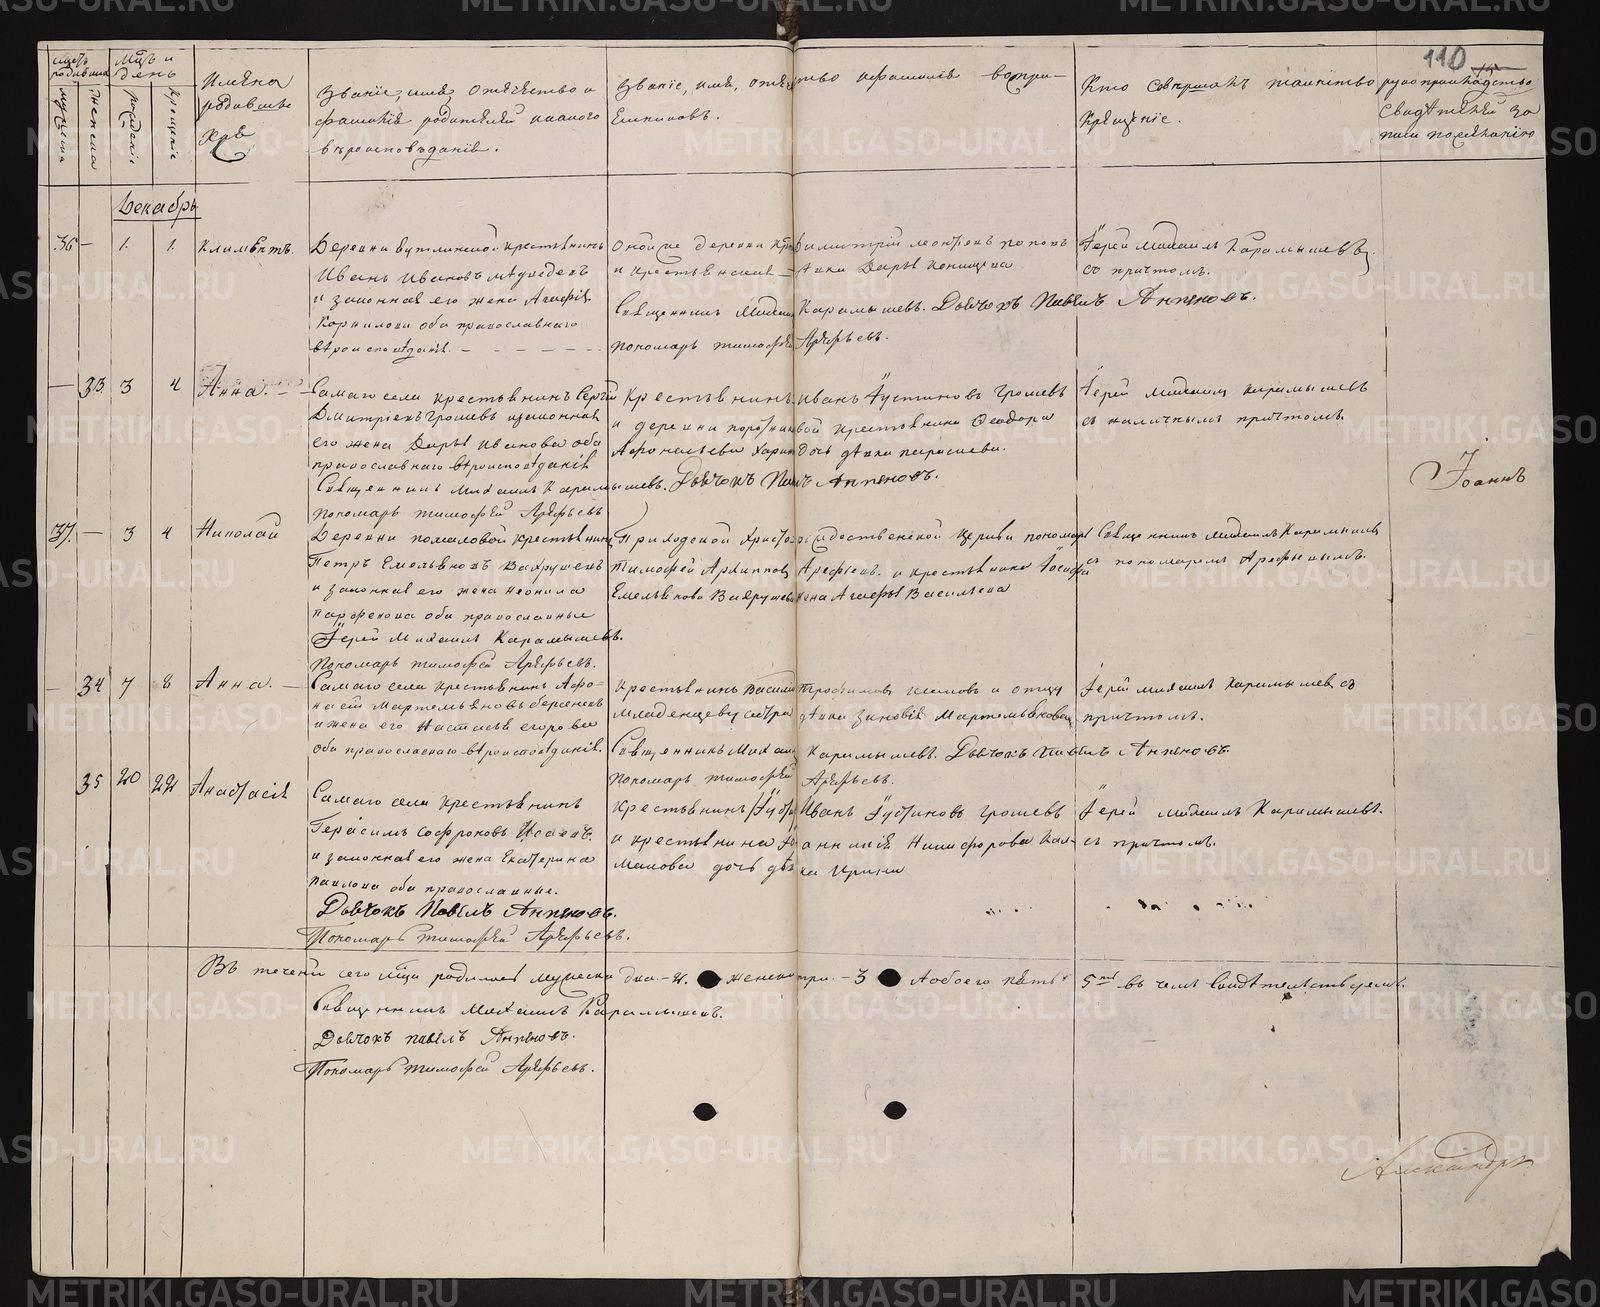 110
Счетъ родившихся
Мцъ и день
Имена родившихся
Званіе, имя, отчество и фамилія родителей и какого вѣроисповѣданія.
Званіе, имя, отчество и фамилія воспріемниковъ.
Кто совершалъ таинство крещенія.
Рукоприкладство свидѣтелей записи по желанію
мужеска
женска
рожденія
крещенія
Декабрь
36 — 1. 1. Климентъ.
Деревни крестьянинъ
Иванъ Ивановъ Медведевъ
и законная его жена Агафія
Корнилова оба православнаго
вѣроисповѣданія. — — — — —
Оной же деревни Димитрій Леонтьевъ Поповъ
и крестьянская — дѣвка Дарья
Священникъ Михаилъ Карамышевъ. Дьячокъ Павелъ Анпеновъ.
Пономарь Тимофей Арефьевъ.
Іерей Михаилъ Карамышевъ
съ причтомъ.
— 33 3 4 Анна. —
Самаго села крестьянинъ Сергій
Дмитріевъ Грошевъ и законная
его жена Дарья Иванова оба
православнаго вѣроисповѣданія
Священникъ Михаилъ Карамышевъ. Дьячокъ Павелъ Анпеновъ.
Пономарь Тимофей Арефьевъ
Крестьянинъ Иванъ Іустиновъ Грошевъ
и деревни крестьянина Феодора
Афонасьева дочь дѣвка
Іерей Михаилъ Карамышевъ
съ наличнымъ причтомъ.
Іоаннъ
37. — 3 4 Николай
Деревни крестьянинъ
Петръ Емельяновъ Вахрушевъ
и законная его жена Неонила
Парфенова оба православные
Іерей Михаилъ Карамышевъ.
Пономарь Тимофей Арефьевъ.
Приходской Христорождественской церкви пономарь
Тимофей Архиповъ Арефьевъ. и крестьянина Іосифа
Емельянова Вахрушева жена Агафья Васильева
Священникъ Михаилъ Карамышевъ
съ пономаремъ Арефьевымъ.
— 34 7 8 Анна. —
Самаго села крестьянинъ Афо-
насій Мартемьяновъ
и жена его Настасья Егорова
оба православнаго вѣроисповѣданія.
Крестьянинъ Василій Трофимовъ и отцу
младенцеву сестра дѣвка Зиновія Мартемьянова
Священникъ Михаилъ Карамышевъ. Дьячокъ Павелъ Анпеновъ.
Пономарь Тимофей Арефьевъ.
Іерей Михаилъ Карамышевъ съ
причтомъ.
35 20 22 Анастасія
Самаго села крестьянинъ
Герасимъ Софроновъ Исаевъ.
и законная его жена Екатерина
Павлова оба православные.
Дьячокъ Павелъ Анпеновъ.
Пономарь Тимофей Арефьевъ.
Крестьянинъ Иванъ Іустиновъ Грошевъ
и крестьянина Никифорова
дочь дѣвка Ирина
Іерей Михаилъ Карамышевъ.
съ причтомъ.
Въ теченіи сего мца родилось мужеска два — 2. женска три — 3 А обоего пять 5ть въ чемъ свидѣтельствуемъ.
Священникъ Михаилъ Карамышевъ.
Дьячокъ Павелъ Анпеновъ.
Пономарь Тимофей Арефьевъ.
Александръ
METRIKI.GASO-URAL.RU